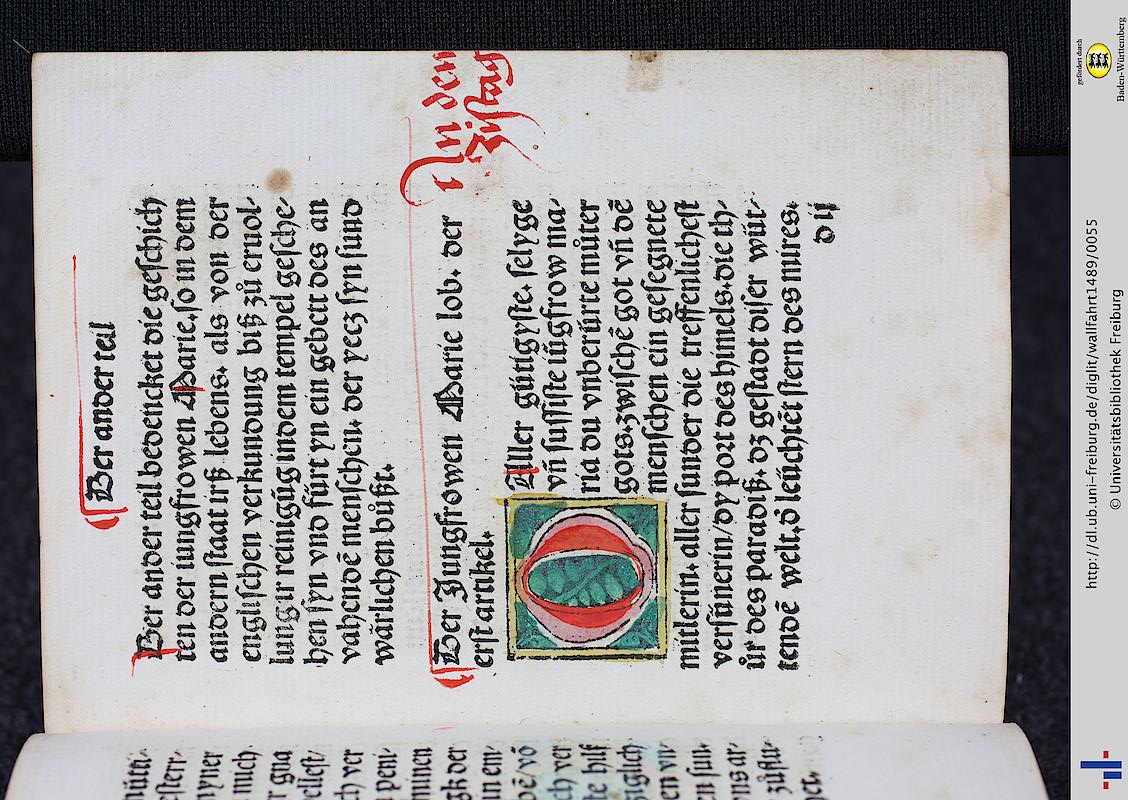 Der ander teil
Der ander teil bedencket die geschich
ten der iungfrowen Marie. so in dem
andern staat irß lebens. als von der
englischen verkundung biß zů ernol-
lung ir reinigũg in dem tempel gesche-
hen syn vnd fürt yn ein gebett des an
vahendẽ menschen. der yecz syn sund
wärlichen bůßt.
An den
zistag
Der Jungfrowen Marie lob. der
erst artikel.
O Aller gütigyste. selyge
vñ sussiste iũgfrow ma-
ria du vnberürte můter
gots. zwischẽ got vñ dẽ
menschen ein gesegnete
mitlerin. aller sunder die treffenlichest
versünerin/ dy port des himels. die th-
ür des paradiß. dz gestadt diser wüt-
tendẽ welt. d̾ leüchtẽt stern des mires.
d ij
http://dl.ub.uni-freiburg.de/diglit/wallfahrt1489/0055
© Universitätsbibliothek Freiburg
gefördert durch
Baden-Württemberg